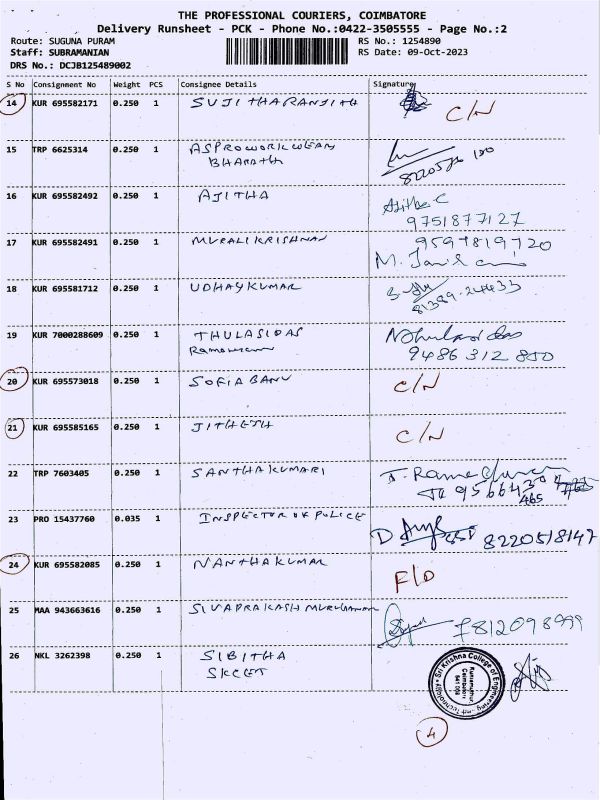 THE PROFESSIONAL COURIERS, COIMBATORE
Delivery Runsheet - PCK - Phone No.:0422-3505555 - Page No.:2
Route: SUGUNA PURAM
RS No.: 1254890
Staff: SUBRAMANIAN
RS Date: 09-Oct-2023
DRS No.: DCJB125489002
S No Consignment No Weight PCS Consignee Details Signature
14 KUR 695582171 0.250 1 SUJITHARANJITH C/N
15 TRP 6625314 0.250 1 ASPROWORKWEARS
BHARATH
16 KUR 695582492 0.250 1 AJITHA
9751877127
17 KUR 695582491 0.250 1 MURALIKRISHNAN 9597819720
18 KUR 695581712 0.250 1 UDHAYKUMAR
81389.24433
19 KUR 7000288609 0.250 1 THULASIDAS
9486312850
20 KUR 695573018 0.250 1 SOFIA BANU C/N
21 KUR 695585165 0.250 1 JITHETH C/N
22 TRP 7603405 0.250 1 SANTHAKUMARI
465
23 PRO 15437760 0.035 1 INSPECTOR OF POLICE 8220518147
24 KUR 695582085 0.250 1 NANTHAKUMAR F/D
25 MAA 943663616 0.250 1 SIVAPRAKASH MURUGANAN 7812098999
26 NKL 3262398 0.250 1 SIBITHA
SKCET
Sri Krishna College of Engineering and Technology
Kuniamuthur
Coimbatore
641 008
4